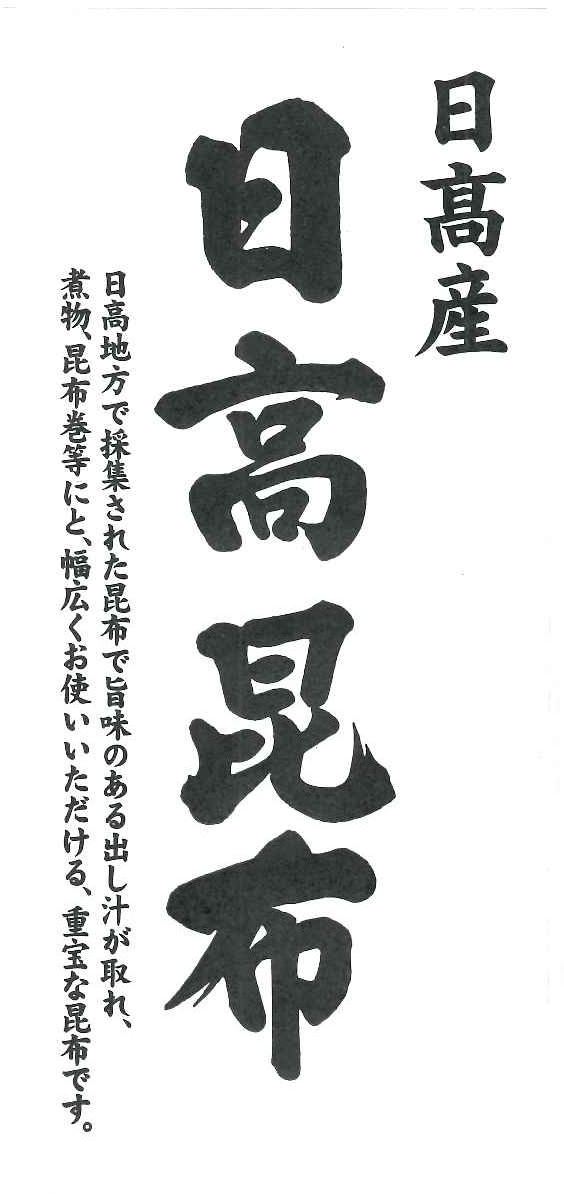 日髙産
日高昆布
日高地方で採集された昆布で旨味のある出し汁が取れ、
煮物、昆布巻等にと、幅広くお使いいただける、重宝な昆布です。